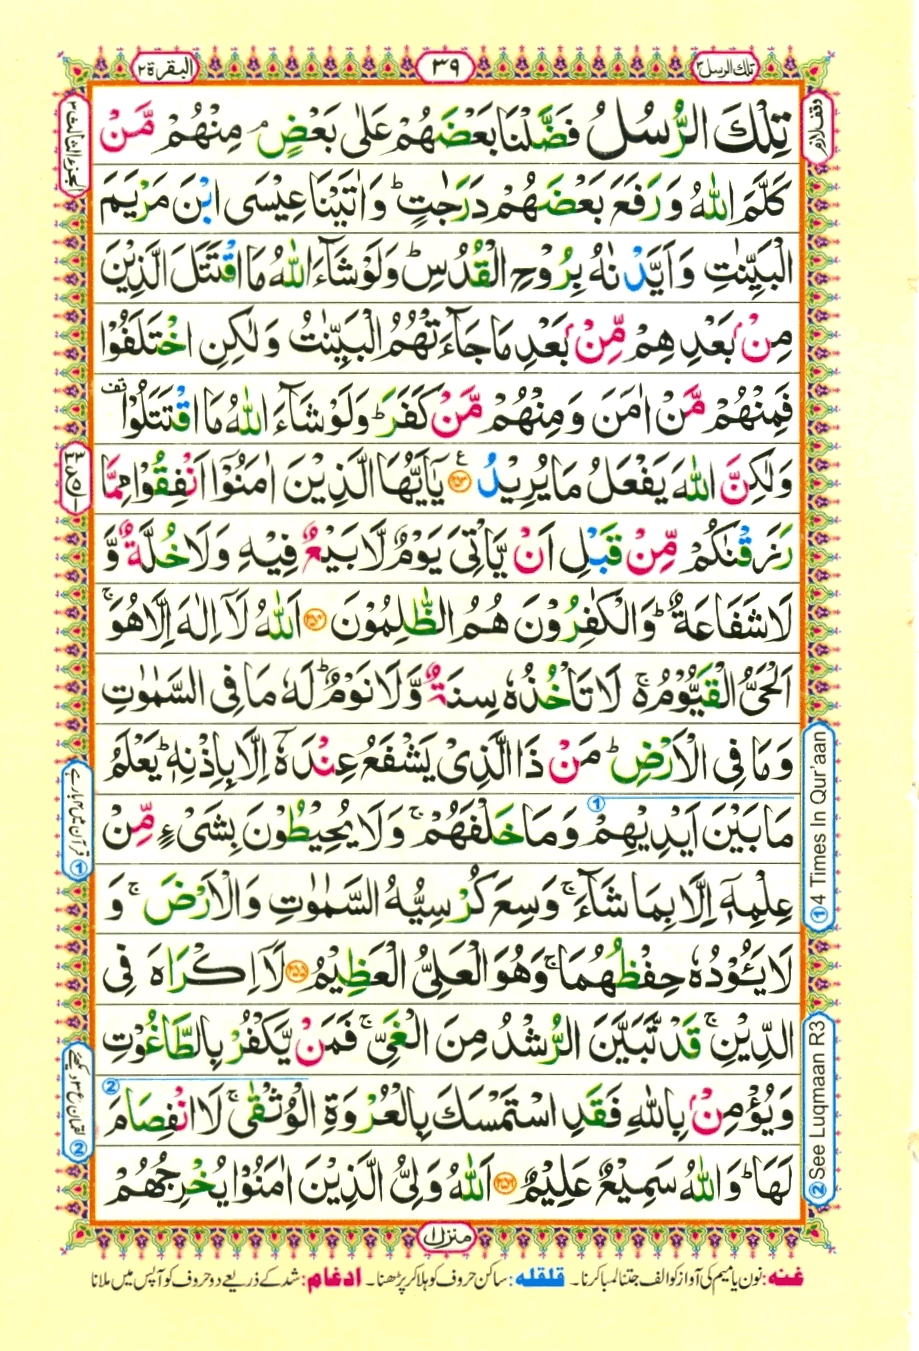 البقرة ٢
٣٩
تلك الرسل ٣
تِلْكَ الرُّسُلُ فَضَّلْنَا بَعْضَهُمْ عَلٰى بَعْضٍ ۘ مِنْهُمْ مَّنْ
كَلَّمَ اللّٰهُ وَ رَفَعَ بَعْضَهُمْ دَرَجٰتٍ ؕ وَ اٰتَيْنَا عِيْسَى ابْنَ مَرْيَمَ
الْبَيِّنٰتِ وَ اَيَّدْنٰهُ بِرُوْحِ الْقُدُسِ ؕ وَ لَوْ شَآءَ اللّٰهُ مَا اقْتَتَلَ الَّذِيْنَ
مِنْۢ بَعْدِهِمْ مِّنْۢ بَعْدِ مَا جَآءَتْهُمُ الْبَيِّنٰتُ وَ لٰكِنِ اخْتَلَفُوْا
فَمِنْهُمْ مَّنْ اٰمَنَ وَ مِنْهُمْ مَّنْ كَفَرَ ؕ وَ لَوْ شَآءَ اللّٰهُ مَا اقْتَتَلُوْا قف
وَ لٰكِنَّ اللّٰهَ يَفْعَلُ مَا يُرِيْدُ ۧ ﴿٢٥٣﴾ يٰۤاَيُّهَا الَّذِيْنَ اٰمَنُوْۤا اَنْفِقُوْا مِمَّا
رَزَقْنٰكُمْ مِّنْ قَبْلِ اَنْ يَّاْتِيَ يَوْمٌ لَّا بَيْعٌ فِيْهِ وَ لَا خُلَّةٌ وَّ
لَا شَفَاعَةٌ ؕ وَ الْكٰفِرُوْنَ هُمُ الظّٰلِمُوْنَ ﴿٢٥٤﴾ اَللّٰهُ لَاۤ اِلٰهَ اِلَّا هُوَ ۚ
اَلْحَيُّ الْقَيُّوْمُ ۚ۬ لَا تَاْخُذُهٗ سِنَةٌ وَّ لَا نَوْمٌ ؕ لَهٗ مَا فِى السَّمٰوٰتِ
وَ مَا فِى الْاَرْضِ ؕ مَنْ ذَا الَّذِيْ يَشْفَعُ عِنْدَهٗۤ اِلَّا بِاِذْنِهٖ ؕ يَعْلَمُ
مَا بَيْنَ اَيْدِيْهِمْ وَ مَا خَلْفَهُمْ ۚ وَ لَا يُحِيْطُوْنَ بِشَيْءٍ مِّنْ
عِلْمِهٖۤ اِلَّا بِمَا شَآءَ ۚ وَسِعَ كُرْسِيُّهُ السَّمٰوٰتِ وَ الْاَرْضَ ۚ وَ
لَا يَـُٔوْدُهٗ حِفْظُهُمَا ۚ وَ هُوَ الْعَلِيُّ الْعَظِيْمُ ﴿٢٥٥﴾ لَاۤ اِكْرَاهَ فِى
الدِّيْنِ ۚ قَدْ تَّبَيَّنَ الرُّشْدُ مِنَ الْغَيِّ ۚ فَمَنْ يَّكْفُرْ بِالطَّاغُوْتِ
وَ يُؤْمِنْۢ بِاللّٰهِ فَقَدِ اسْتَمْسَكَ بِالْعُرْوَةِ الْوُثْقٰى ۚ لَا انْفِصَامَ
لَهَا ؕ وَ اللّٰهُ سَمِيْعٌ عَلِيْمٌ ﴿٢٥٦﴾ اَللّٰهُ وَلِيُّ الَّذِيْنَ اٰمَنُوْا يُخْرِجُهُمْ
منزل ١
غنہ: نون یا میم کی آواز کو الف جتنا لمبا کرنا۔ قلقلہ: ساکن حروف کو ہلا کر پڑھنا۔ ادغام: شد کے ذریعے دو حروف کو آپس میں ملانا
وقف لازم
① 4 Times In Qur'aan
② See Luqmaan R3
الجزء الثالث ٣
قرآن میں ۴ بار ہے ①
②
①
②